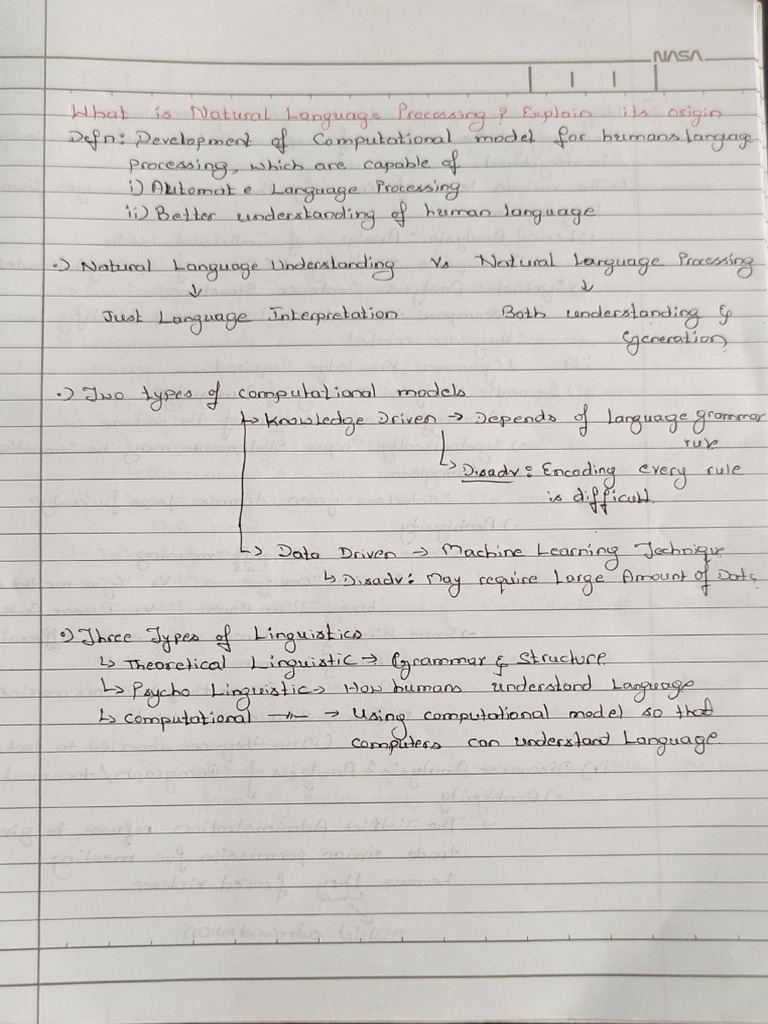 NASA
What is Natural Language Processing? Explain its origin
Defn: Development of Computational model for humans language
processing, which are capable of
i) Automate Language Processing
ii) Better understanding of human language
•) Natural Language Understanding Vs Natural Language Processing
↓ ↓
Just Language Interpretation Both understanding &
Generation
•) Two types of computational models
↳ Knowledge Driven → Depends of Language grammar
rule
↳ Disadv: Encoding every rule
is difficult.
↳ Data Driven → Machine Learning Technique
↳ Disadv: May require Large Amount of Data
•) Three Types of Linguistics
↳ Theoretical Linguistic → Grammar & Structure
↳ Psycho Linguistic → How humans understand Language
↳ Computational —〃— → Using computational model so that
computers can understand Language.